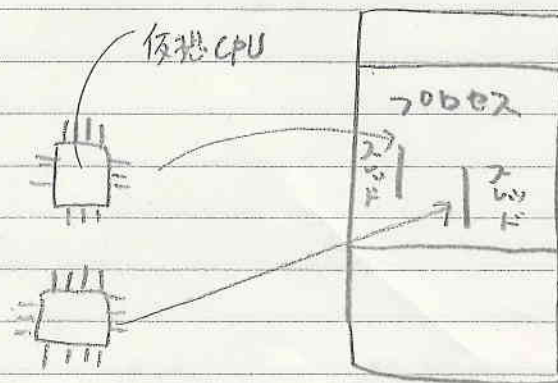 仮想CPU
プロセス
スレッド
スレッド